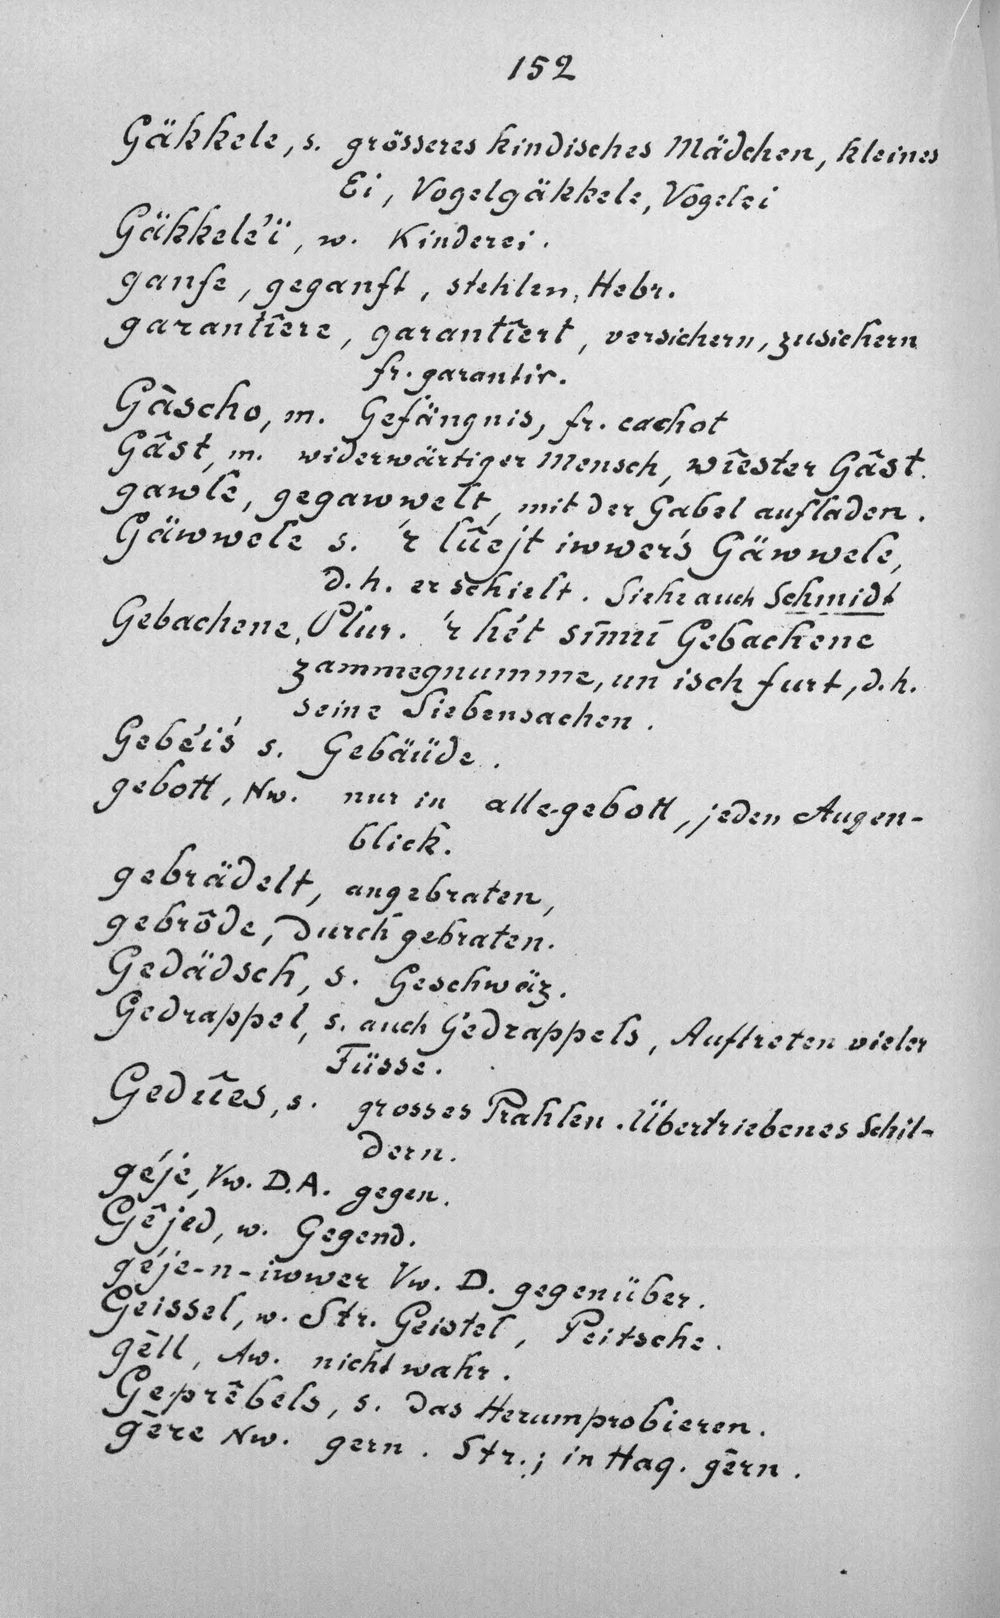 152
Gäkkele, s. grösseres kindisches Mädchen, kleines
Ei, Vogelgäkkele, Vogelei
Gäkkele'ï, w. Kinderei.
ganfe, geganft, stehlen, Hebr.
garantîere, garantîert, versichern, zusichern
fr. garantir.
Gâscho, m. Gefängnis, fr. cachot
Gâst, m. widerwärtiger Mensch, wîester Gâst.
gawle, gegawwelt, mit der Gabel aufladen.
Gäwwele s. 'r lûejt iwwer's Gäwwele,
d.h. er schielt. Siehe auch Schmidt
Gebachene, Plur. 'r hét sīnnī Gebachene
zammegnumme, un isch furt, d.h.
seine Siebensachen.
Gebéi's s. Gebäüde.
gebott, Nw. nur in alle-gebott, jeden Augen-
blick.
gebrädelt, angebraten,
gebrôde, durch gebraten.
Gedädsch, s. Geschwäz.
Gedrappel, s. auch Gedrappels, Auftreten vieler
Füsse.
Gedûes, s. grosses Prahlen. Übertriebenes Schil-
dern.
géje, Vw. D.A. gegen.
Gêjed, w. Gegend.
géje-n-iwwer Vw. D. gegenüber.
Geissel, w. Str. Geistel, Peitsche.
gèll, Aw. nicht wahr.
Geprêbels, s. das Herumprobieren.
gēre Nw. gern. Str.; in Hag. gērn.